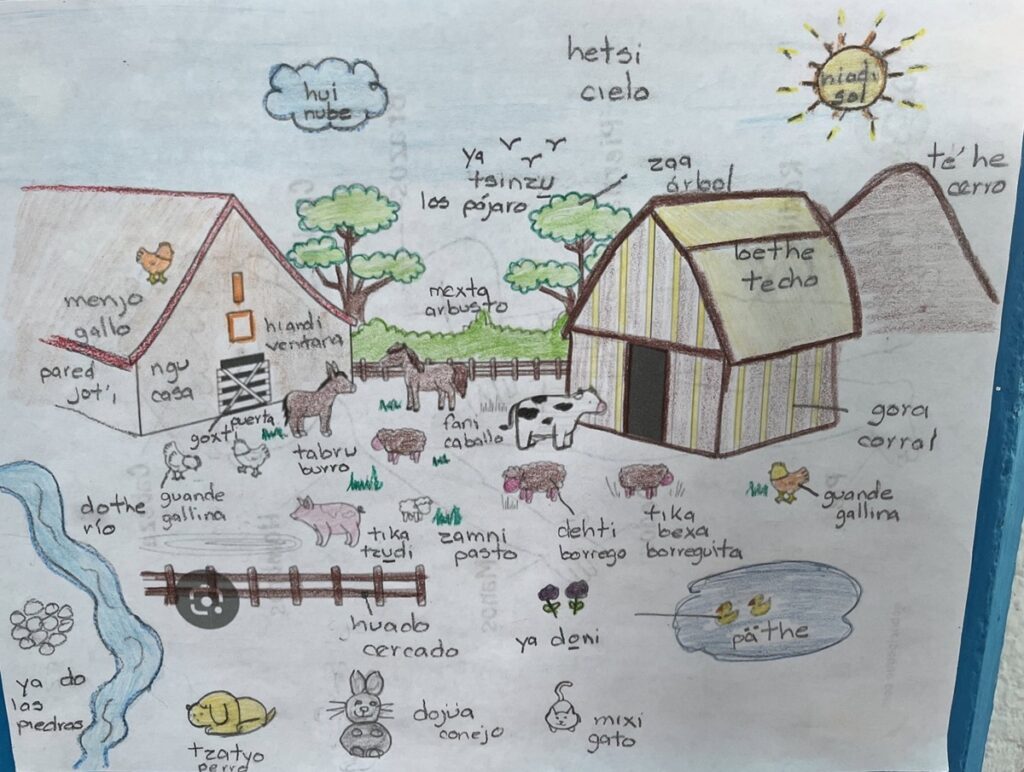 hetsi
cielo
hui
nube
hiadi
sol
ya
tsinzu̲
los pójaro
zaa
árbol
té'he
cerro
bethe
techo
menjo
gallo
mexta
arbusto
hiandi
ventana
pared
jot'i
ngu
casa
puerta
goxti
tabru
burro
fani
caballo
gora
corral
dothe
río
guande
gallina
tika
tzu̲di
zamni
pasto
dehti
borrego
tika
bexa
borreguita
guande
gallina
huado
cercado
ya do̲ni
päthe
ya do
las
piedras
tzatyo
perro
dojua
conejo
mixi
gato